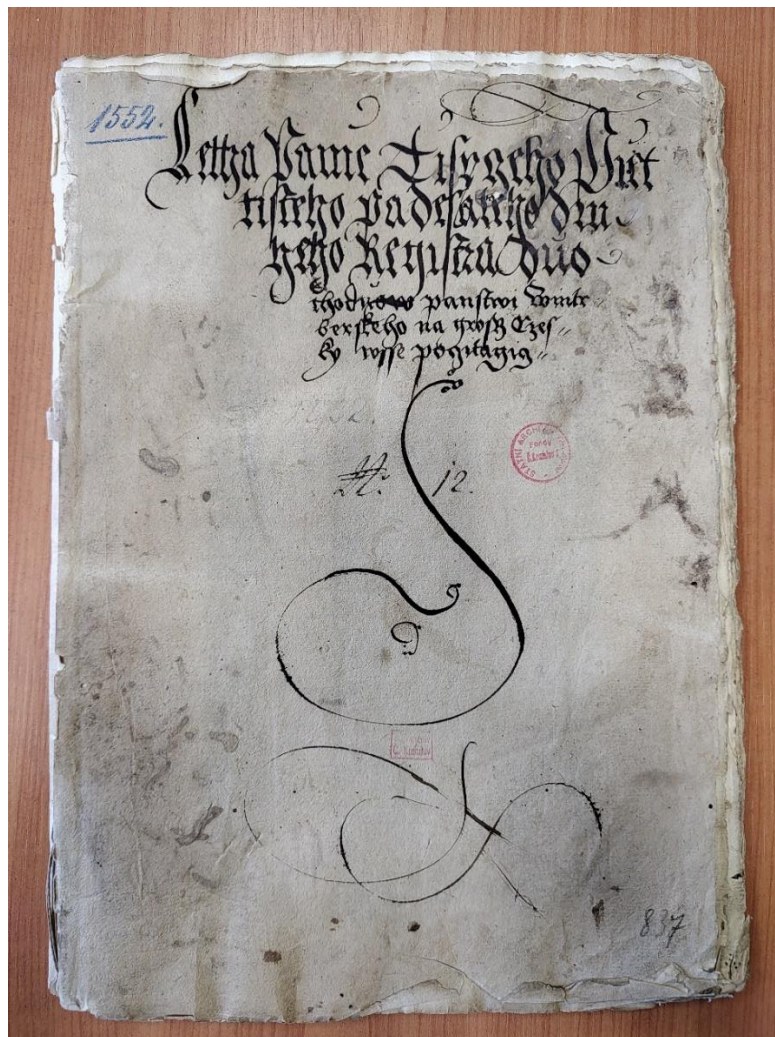 1552.
Lettha Panie Tisyczeho Piet
tisteho padesateho dru
heho Register duo
choduow panstwi Wintr
berskeho na grossy Czes
ky wsse pogitagicz
12.
STATNI ARCHIV
Č. Krumlov
837